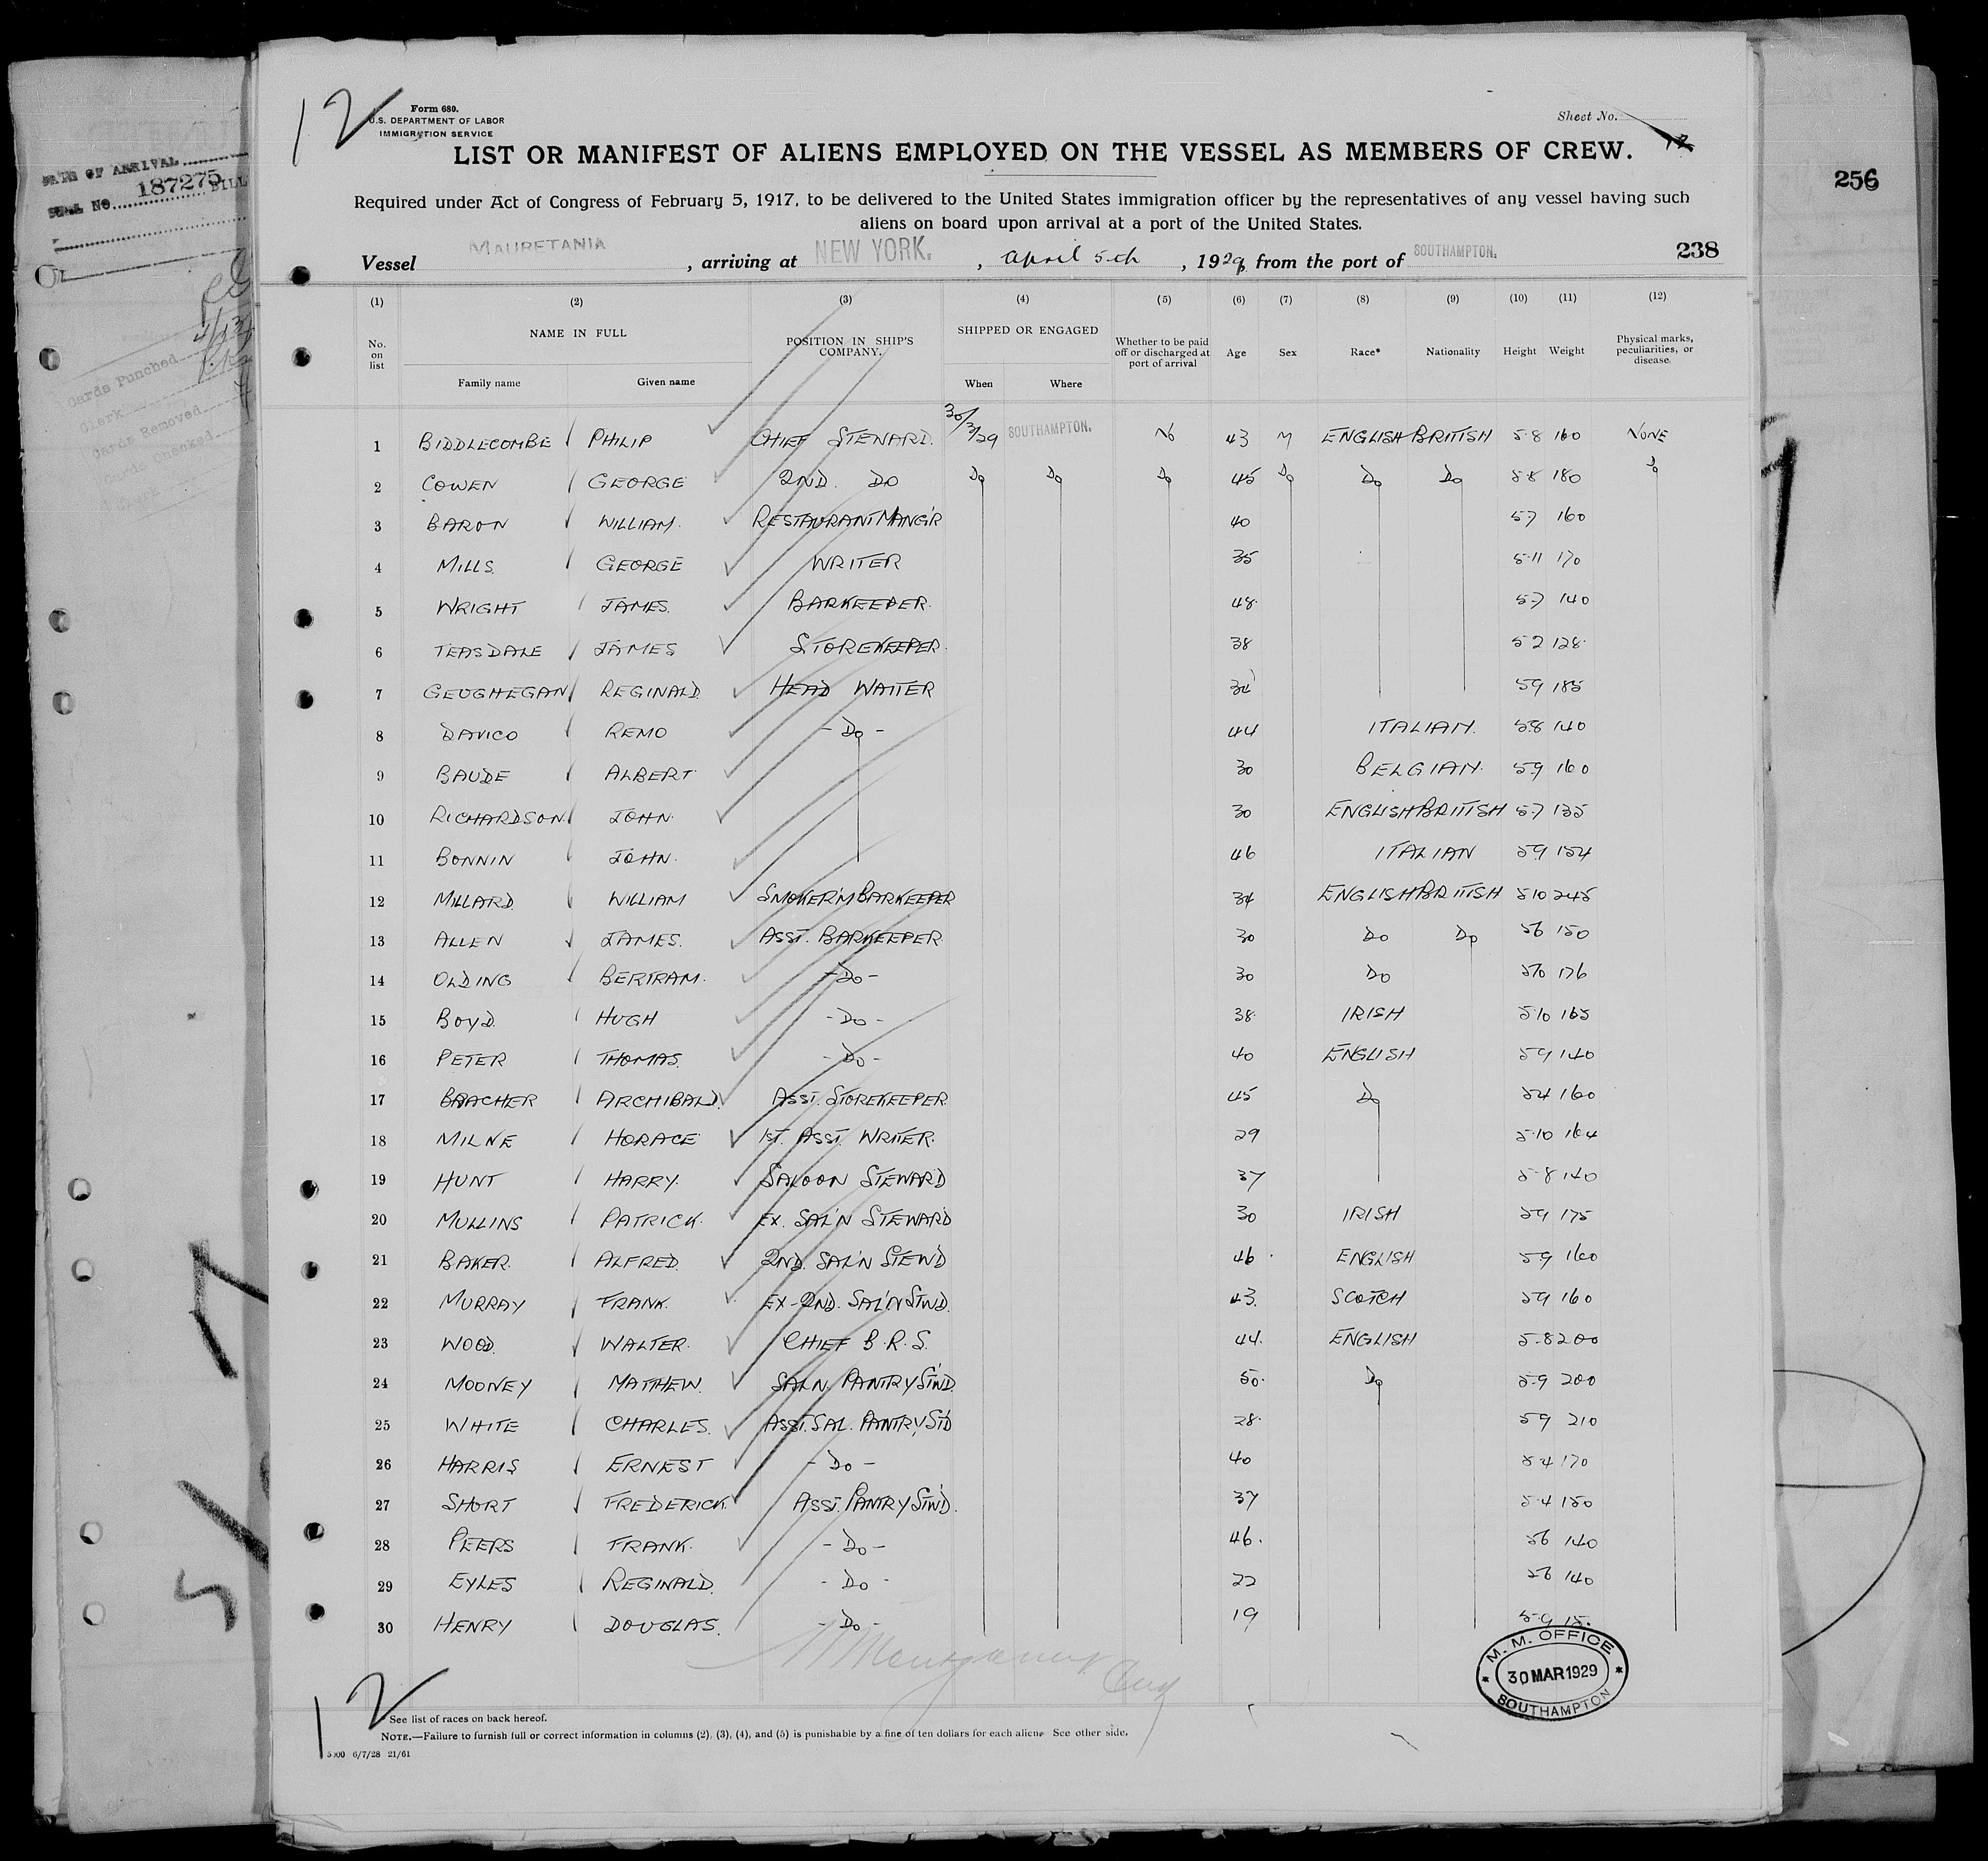 12
Form 680.
U.S. DEPARTMENT OF LABOR
IMMIGRATION SERVICE
Sheet No. 12
LIST OR MANIFEST OF ALIENS EMPLOYED ON THE VESSEL AS MEMBERS OF CREW.
Required under Act of Congress of February 5, 1917, to be delivered to the United States immigration officer by the representatives of any vessel having such
aliens on board upon arrival at a port of the United States.
Vessel MAURETANIA, arriving at NEW YORK., April 5th, 1929, from the port of SOUTHAMPTON. 238
256
DATE OF ARRIVAL
SERIAL NO. 187275 BILL
Cards Punched
Clerk
Cards Removed
Words Checked
Clerk
(1) (2) (3) (4) (5) (6) (7) (8) (9) (10) (11) (12)
No. on list NAME IN FULL POSITION IN SHIP'S COMPANY. SHIPPED OR ENGAGED Whether to be paid off or discharged at port of arrival Age Sex Race* Nationality Height Weight Physical marks, peculiarities, or disease.
Family name Given name When Where
1 BIDDLECOMBE PHILIP CHIEF STEWARD. 30/3/29 SOUTHAMPTON. No 43 M ENGLISH BRITISH 5-8 160 NONE
2 COWEN GEORGE 2ND. DO Do Do Do 45 Do Do Do 5-8 180 Do
3 BARON WILLIAM. RESTAURANT MANG'R 40 5-7 160
4 MILLS. GEORGE WRITER 35 5-11 170
5 WRIGHT JAMES. BARKEEPER. 48 5-7 140
6 TEASDALE JAMES STOREKEEPER. 38 5 2 128
7 GEOGHEGAN REGINALD HEAD WAITER 34 59 185
8 DAVICO REMO -Do- 44 ITALIAN. 5-8 140
9 BAUDE ALBERT 30 BELGIAN. 5-9 160
10 RICHARDSON JOHN. 30 ENGLISH BRITISH 5-7 135
11 BONNIN JOHN. 46 ITALIAN 59 154
12 MILLARD. WILLIAM SMOKER'M BARKEEPER 34 ENGLISH BRITISH 510 245
13 ALLEN JAMES. ASST. BARKEEPER 30 Do Do 56 150
14 OLDING BERTRAM. -Do- 30 Do 510 176
15 BOYD. HUGH -Do- 38 IRISH 5-10 165
16 PETER THOMAS. -Do- 40 ENGLISH 59 140
17 BRACHER ARCHIBALD. ASST. STOREKEEPER 45 Do 54 160
18 MILNE HORACE 1ST. ASST. WRITER. 29 5-10 164
19 HUNT HARRY. SALOON STEWARD 37 5-8 140
20 MULLINS PATRICK. EX. SAL'N STEWARD 30 IRISH 59 175
21 BAKER. ALFRED. 2ND. SAL'N STEW'D 46 ENGLISH 59 160
22 MURRAY FRANK. EX-2ND. SAL'N STWD. 43. SCOTCH 59 160
23 WOOD. WALTER. CHIEF B.R.S. 44. ENGLISH 5-8 200
24 MOONEY MATTHEW. SALN. PANTRY STWD. 50. Do 5-9 200
25 WHITE CHARLES. ASST. SAL. PANTRY STD 28 59 210
26 HARRIS ERNEST -Do- 40 5 4 170
27 SHORT FREDERICK. ASST. PANTRY STWD. 37 5-4 150
28 PEERS FRANK. -Do- 46. 56 140
29 EYLES REGINALD. -Do- 22 56 140
30 HENRY DOUGLAS. -Do- 19 5-9
M. M. OFFICE
30 MAR 1929
SOUTHAMPTON
12
See list of races on back hereof.
NOTE.—Failure to furnish full or correct information in columns (2), (3), (4), and (5) is punishable by a fine of ten dollars for each alien. See other side.
5000 6/7/28 21/61